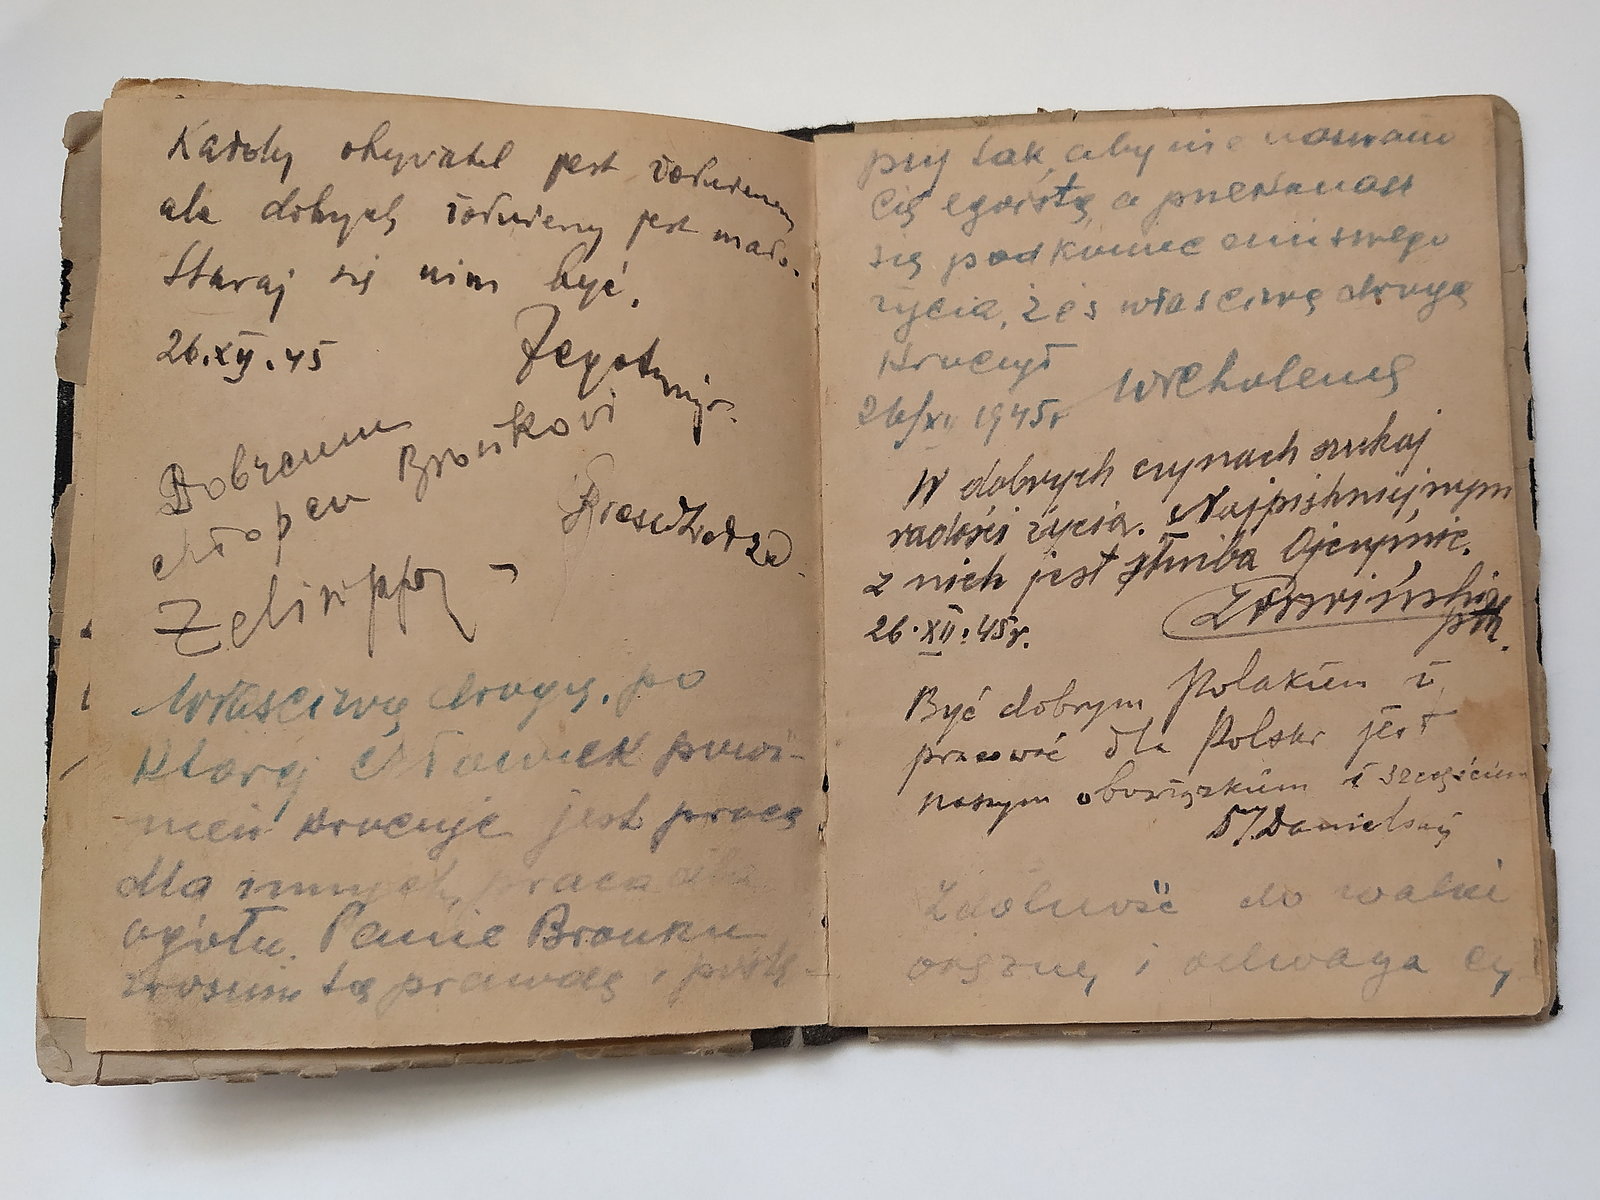 Każdy obywatel jest żołnierzem
ale dobrych żołnierzy jest mało.
Staraj się nim być.
26.XII.45
Dobremu
chłopcu Bronkowi
Właściwą drogą, po
której człowiek powi-
nien kroczyć jest praca
dla innych, praca dla
ogółu. Panie Bronku
zrozum tę prawdę i
przy tak, aby nie nazwano
Cię egoistą, a przekonasz
się pod koniec
życia, żeś właściwą drogą
kroczył
26/XII 1945r
W dobrych czynach szukaj
radości życia. Najpiękniejszym
z nich jest służba Ojczyźnie.
26.XII.45r.
Być dobrym Polakiem i
pracować dla Polski jest
naszym obowiązkiem i szczęściem
Zdolność do walki
orężnej i odwaga cy